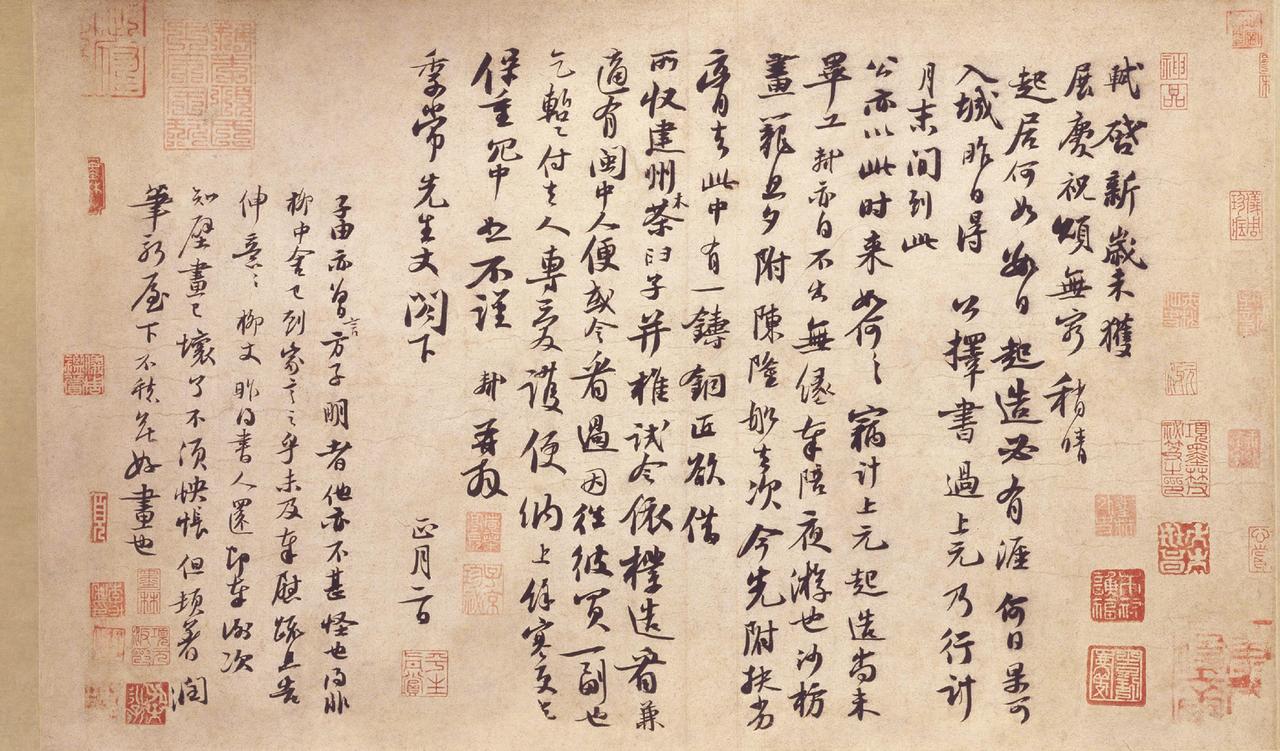 軾啓新歲未獲
展慶祝頌無窮稍晴
起居何如數日起造必有涯何日果可
入城昨日得公擇書過上元乃行計
月末間到此
公亦以此時来如何〻竊計上元起造尚未
畢工軾亦自不出無緣奉陪夜游也沙枋
畫籠旦夕附陳隆船去次今先附扶劣
膏去此中有一鑄銅匠欲借
所收建州木茶臼子并椎試令依樣造看兼
適有閩中人便或令看過因往彼買一副也
乞暫〻付去人專愛護便納上餘寒更乞
保重冗中恕不謹軾再拜
季常先生丈閤下
正月二日
子由亦曾言方子明者他亦不甚怪也得非
柳中舍已到家言之乎未及奉慰疏且告
伸意〻柳丈昨得書人還即奉謝次
知壁畫已壞了不須怏悵但頓著潤
筆新屋下不愁無好畫也
神品
項墨林父秘笈之印
儀周珍藏
平生真賞
子京